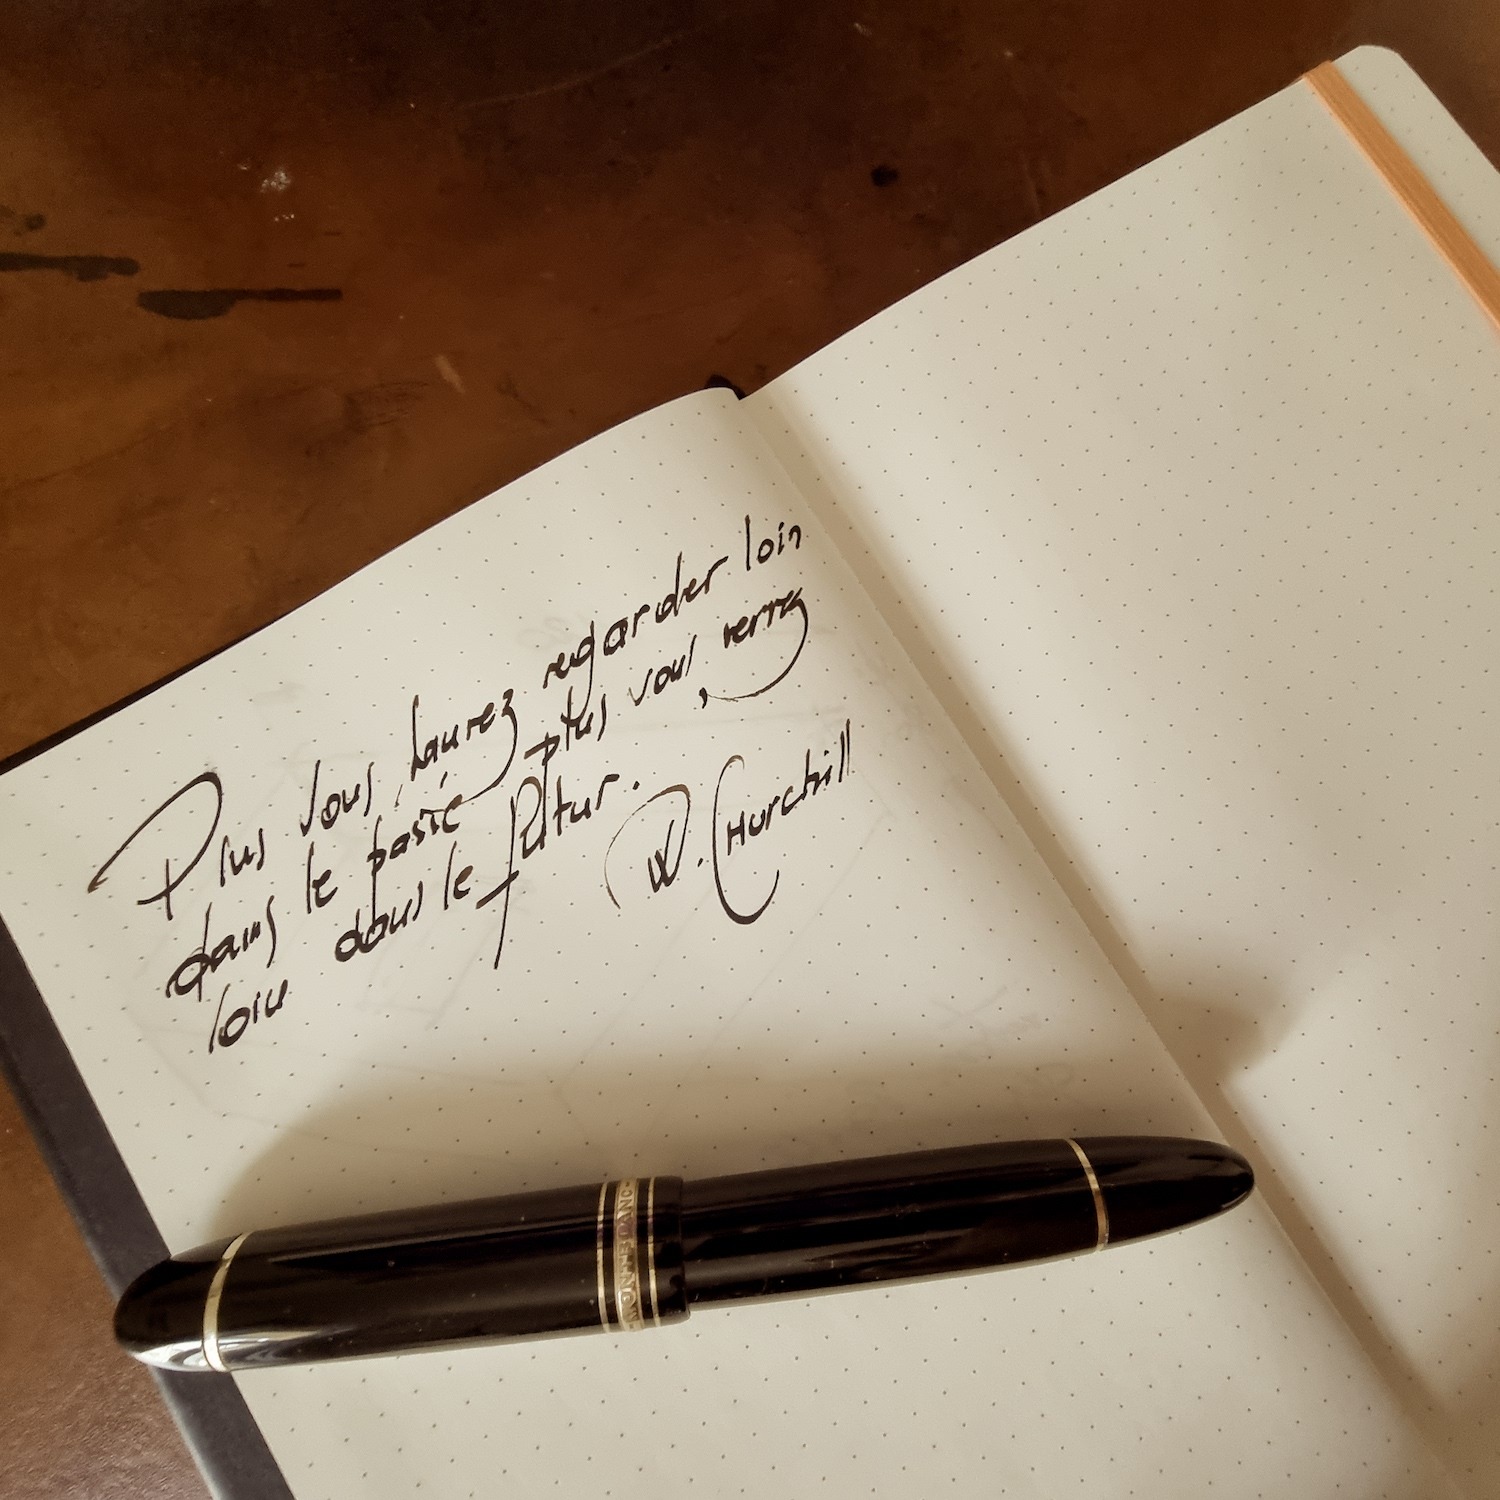 Plus vous saurez regarder loin
dans le passé plus vous verrez
loin dans le futur.
W. Churchill
MONTBLANC